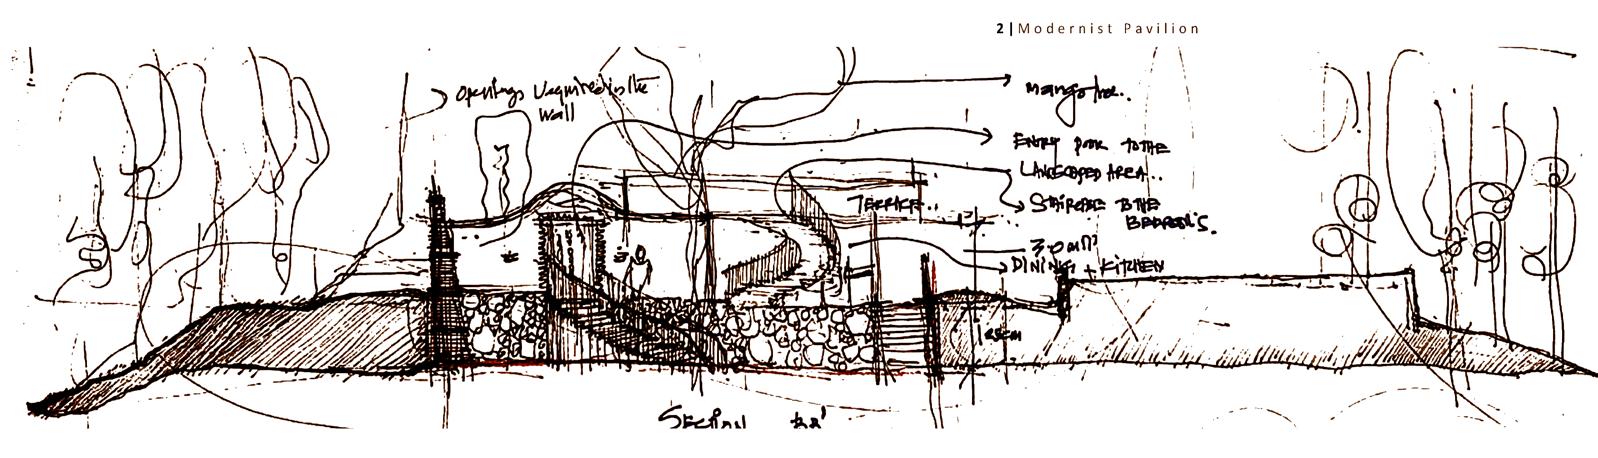 2|Modernist Pavilion
Openings required in the
Wall
mango tree..
ENTRY DOOR TO THE
LANDSCAPED AREA..
STAIRCASE TO THE
TERRACE..
DINING + KITCHEN
SECTION